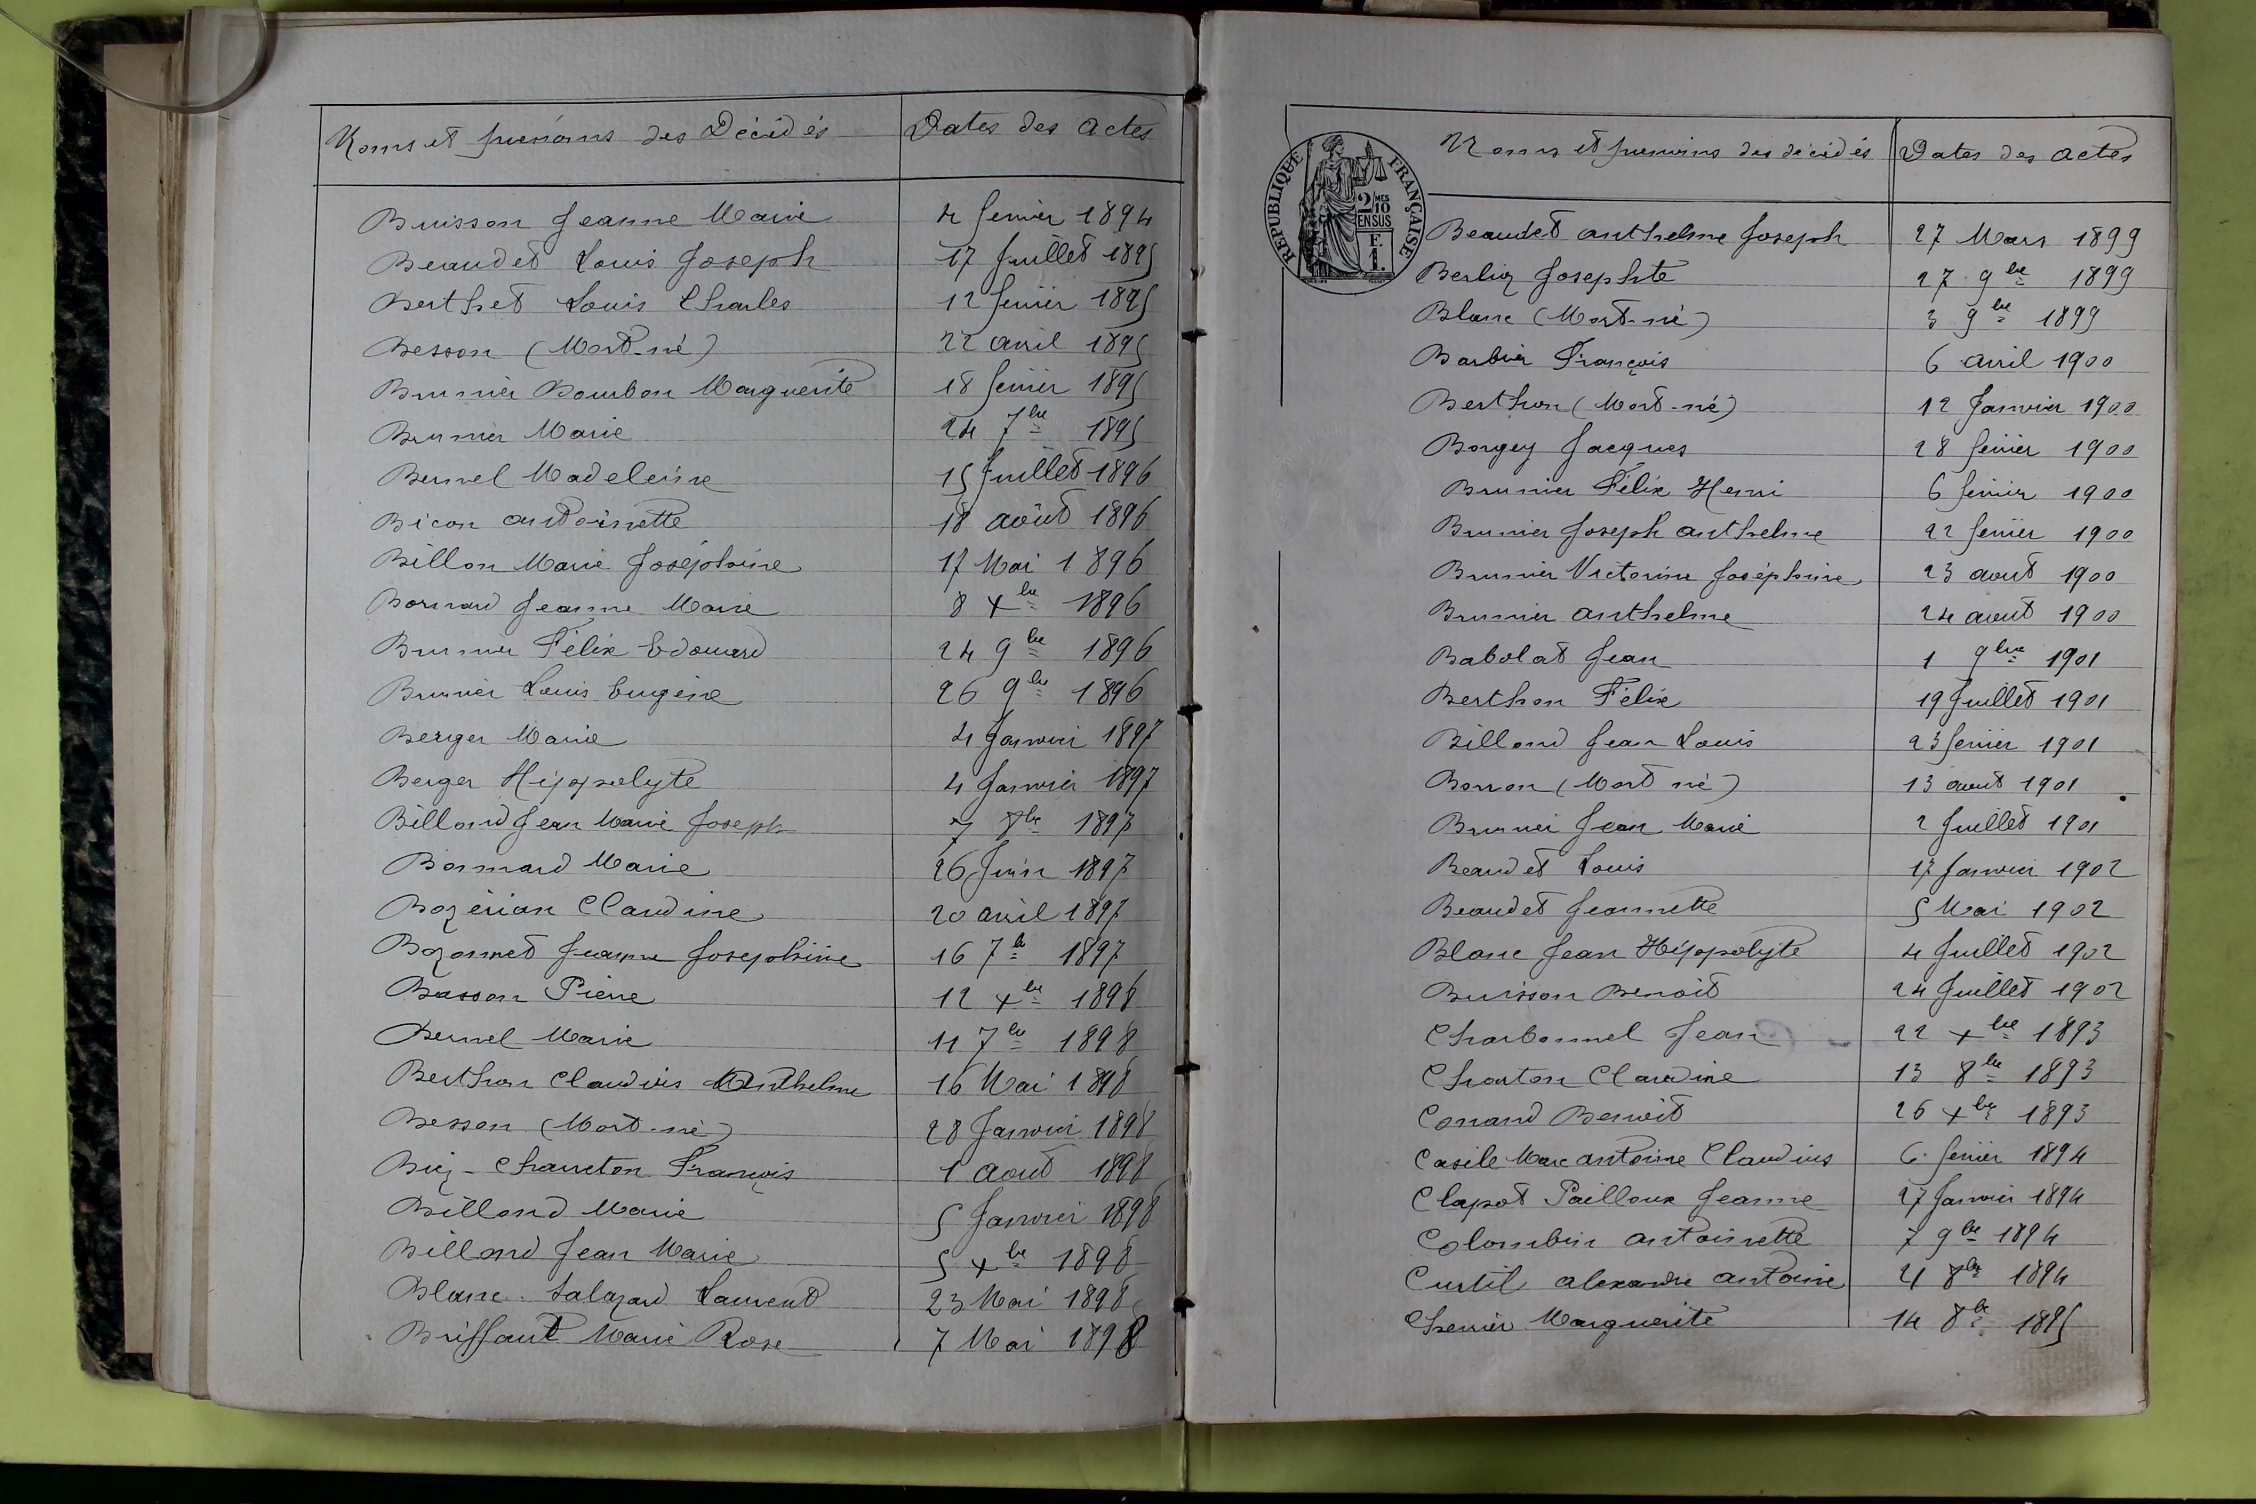 Noms et prénoms des Décédés Dates des actes
Buisson Jeanne Marie 4 fevrier 1894
Beaudet Louis Joseph 17 Juillet 1895
Berthet Louis Charles 12 fevrier 1895
Besson (Mort-né) 22 avril 1895
Brunier Bourbon Marguerite 18 fevrier 1895
Brunier Marie 24 7bre 1895
Bernel Madeleine 15 Juillet 1896
Bicon antoinette 18 août 1896
Billon Marie Joséphine 17 Mai 1896
Bornard Jeanne Marie 8 xbre 1896
Brunier Félix Edouard 24 9bre 1896
Brunier Louis Eugène 26 9bre 1896
Berger Marie 4 Janvier 1897
Berger Hippolyte 4 Janvier 1897
Billard Jean Marie Joseph 7 8bre 1897
Bonnard Marie 26 Juin 1897
Bozérian Claudine 20 avril 1897
Bozonnet Jeanne Josephine 16 7b 1897
Basson Pierre 12 xbre 1898
Bernel Marie 11 7bre 1898
Berthon Claudius Anthelme 16 Mai 1898
Besson (Mort-né) 28 Janvier 1898
Biez-Charreton François 1 aout 1898
Billond Marie 5 Janvier 1898
Billond Jean Marie 5 xbre 1898
Blanc-Salazard Laurent 23 Mai 1898
Briffaut Marie Rose 7 Mai 1898
REPUBLIQUE FRANÇAISE
2/10 MES
EN SUS
F.
1.
Noms et prénoms des décédés Dates des actes
Beaudet anthelme Joseph 27 Mars 1899
Berliez Josephte 27 9bre 1899
Blanc (Mort-né) 3 9bre 1899
Barbier François 6 avril 1900
Berthon (Mort-né) 12 Janvier 1900
Borgey Jacques 28 fevrier 1900
Brunier Félix Henri 6 fevrier 1900
Brunier Joseph anthelme 22 fevrier 1900
Brunier Victorine Joséphine 23 aout 1900
Brunier anthelme 24 aout 1900
Babolat Jean 1 9bre 1901
Berthon Félix 19 Juillet 1901
Billond Jean Louis 23 fevrier 1901
Borron (Mort né) 13 aout 1901
Brunier Jean Marie 2 Juillet 1901
Beaudet Louis 17 Janvier 1902
Beaudet Jeannette 5 Mai 1902
Blanc Jean Hippolyte 4 Juillet 1902
Buisson Benoit 24 Juillet 1902
Charbonnel Jean 22 xbre 1893
Charton Claudine 13 8bre 1893
Conand Benoit 26 xbre 1893
Casile Marc antoine Claudius 6 fevrier 1894
Clapot Pailloux Jeanne 27 Janvier 1894
Colombin antoinette 7 9bre 1894
Curtil alexandre antoine 21 8bre 1894
Chevrier Marguerite 14 8bre 1895